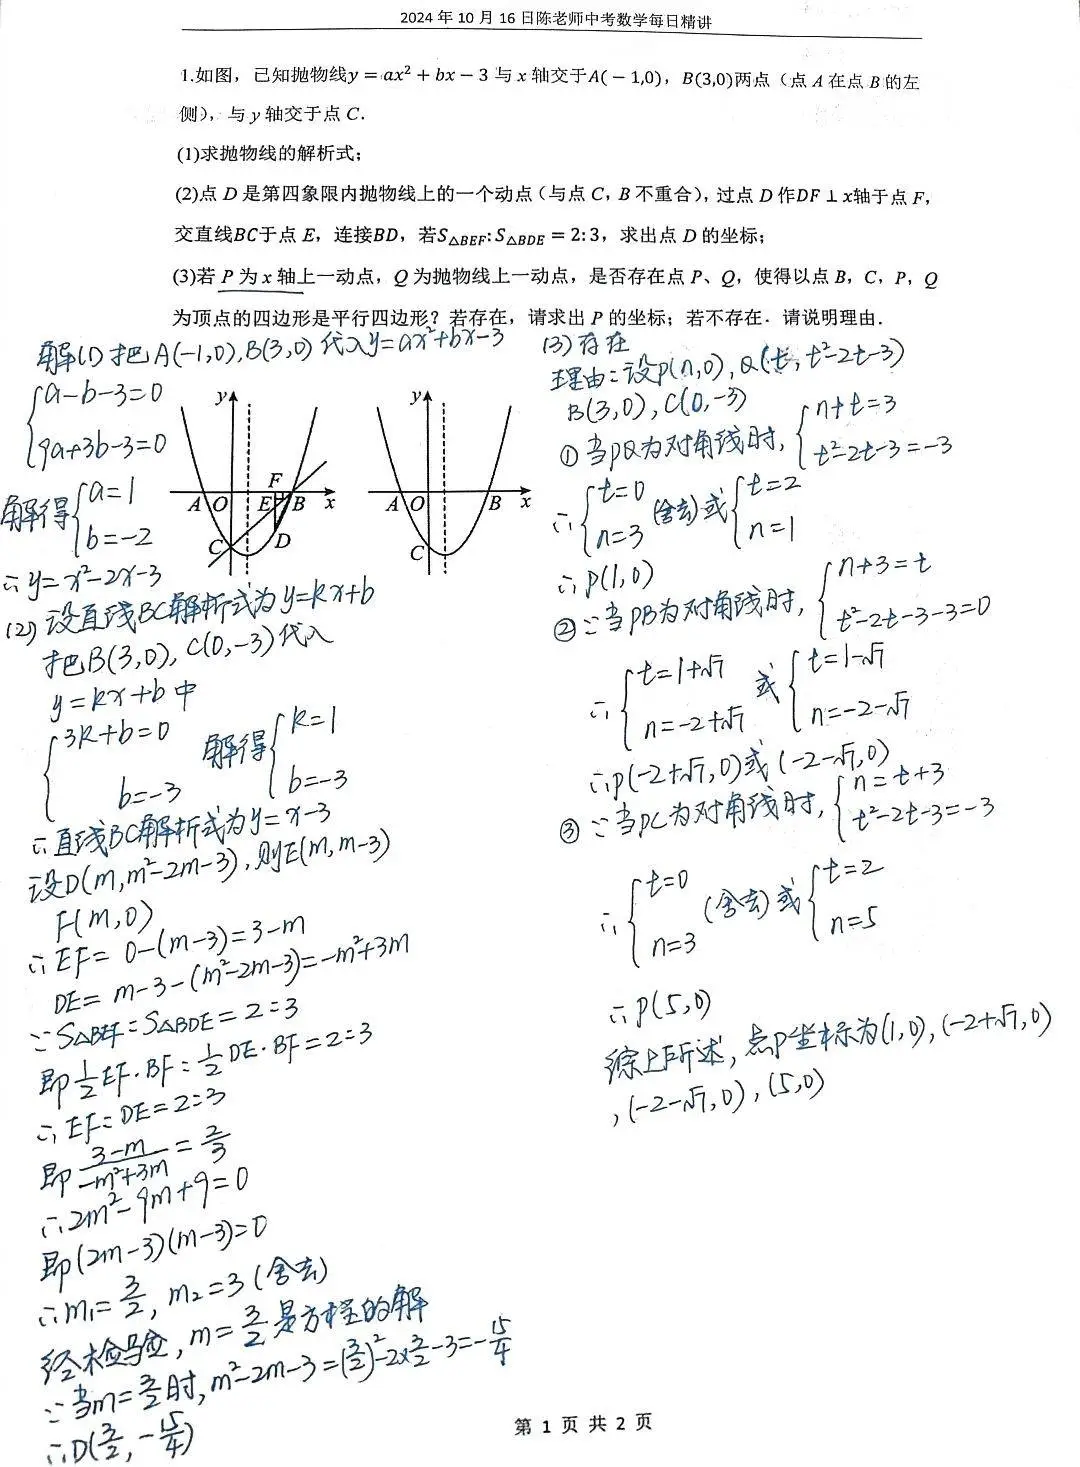 2024年10月16日陈老师中考数学每日精讲
1.如图，已知抛物线y = ax² + bx − 3 与 x 轴交于A(− 1,0)，B(3,0)两点（点 A 在点 B 的左
侧），与 y 轴交于点 C.
(1)求抛物线的解析式；
(2)点 D 是第四象限内抛物线上的一个动点（与点 C，B 不重合），过点 D 作DF ⊥ x轴于点 F，
交直线BC于点 E，连接BD，若S△BEF: S△BDE = 2: 3，求出点 D 的坐标；
(3)若 P 为 x 轴上一动点，Q 为抛物线上一动点，是否存在点 P、Q，使得以点 B，C，P，Q
为顶点的四边形是平行四边形？若存在，请求出 P 的坐标；若不存在．请说明理由．
解(1) 把A(-1,0),B(3,0)代入y=ax²+bx-3
{a-b-3=0
9a+3b-3=0
解得{a=1
b=-2
∴y=x²-2x-3
y
F
A O E B x
C D
y
A O B x
C
(2) 设直线BC解析式为y=kx+b
把B(3,0),C(0,-3)代入
y=kx+b中
{3k+b=0
b=-3
解得{k=1
b=-3
∴直线BC解析式为y=x-3
设D(m,m²-2m-3),则E(m,m-3)
F(m,0)
∴EF=0-(m-3)=3-m
DE=m-3-(m²-2m-3)=-m²+3m
∵S△BEF:S△BDE=2:3
即½EF·BF:½DE·BF=2:3
∴EF:DE=2:3
即 (3-m)/(-m²+3m)=2/3
∴2m²-9m+9=0
即(2m-3)(m-3)=0
∴m₁=3/2,m₂=3(舍去)
经检验,m=3/2是方程的解
∵当m=3/2时,m²-2m-3=(3/2)²-2×3/2-3=-15/4
∴D(3/2,-15/4)
(3)存在
理由:设P(n,0),Q(t,t²-2t-3)
B(3,0),C(0,-3)
①当PQ为对角线时,{n+t=3
t²-2t-3=-3
∴{t=0
n=3
(舍去)或{t=2
n=1
∴P(1,0)
②∵当PB为对角线时,{n+3=t
t²-2t-3-3=0
∴{t=1+√7
n=-2+√7
或{t=1-√7
n=-2-√7
∴P(-2+√7,0)或(-2-√7,0)
③∵当PC为对角线时,{n=t+3
t²-2t-3=-3
∴{t=0
n=3
(舍去)或{t=2
n=5
∴P(5,0)
综上所述,点P坐标为(1,0),(-2+√7,0)
,(-2-√7,0),(5,0)
第 1 页 共 2 页